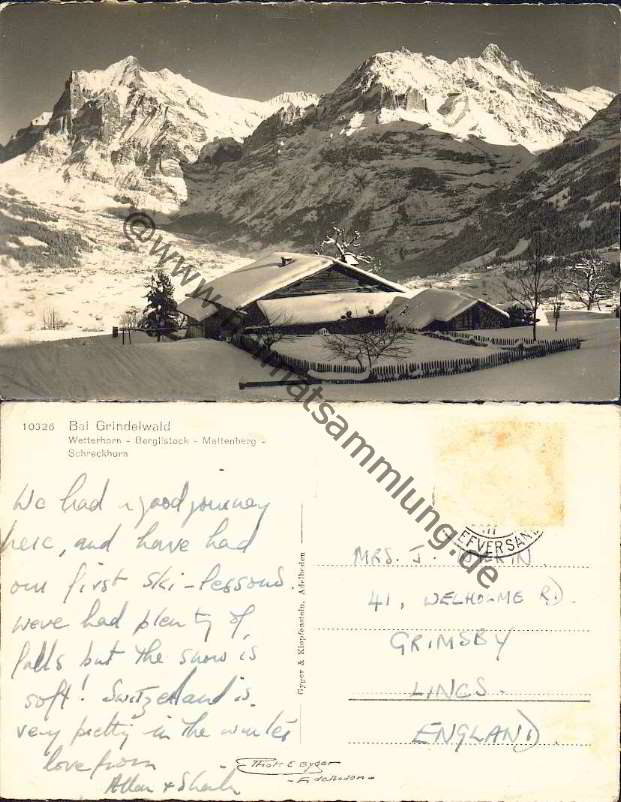 © www.heimatsammlung.de
10326 Bei Grindelwald
Wetterhorn - Berglistock - Mettenberg -
Schreckhorn
We had a good journey
here, and have had
our first ski-lessons.
We've had plenty of
falls but the snow is
soft! Switzerland is
very pretty in the winter
love from
Allan + Sheila
Gyger & Klopfenstein, Adelboden
EFVERSAN
MRS. J.
41, WELHOLME RD.
GRIMSBY
LINCS.
ENGLAND
Phot E Gyger
- Adelboden -